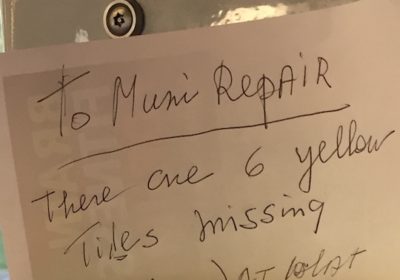 To Muni RepAiR
There are 6 yellow
Tiles missing
AT